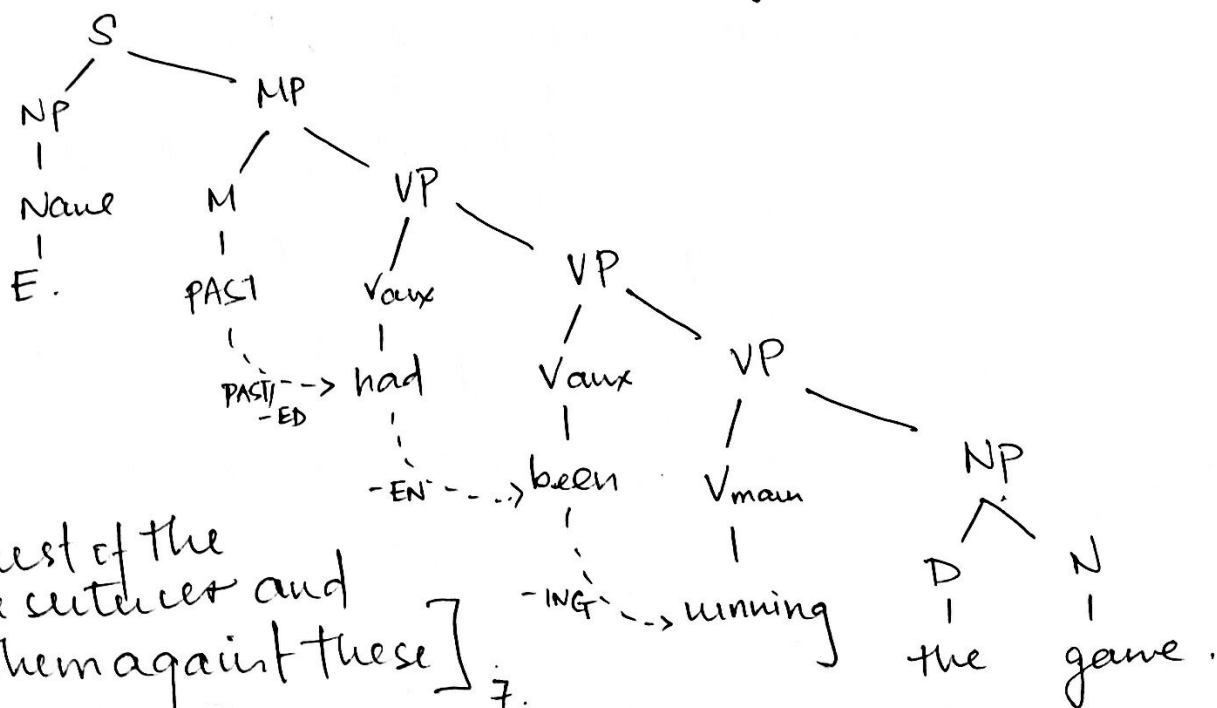 S
NP MP
Name M VP
E. PAST Vaux VP
PAST/-ED had Vaux VP
-EN been Vmain NP
-ING winning D N
the game.
rest of the
sentences and
them against these]
7.